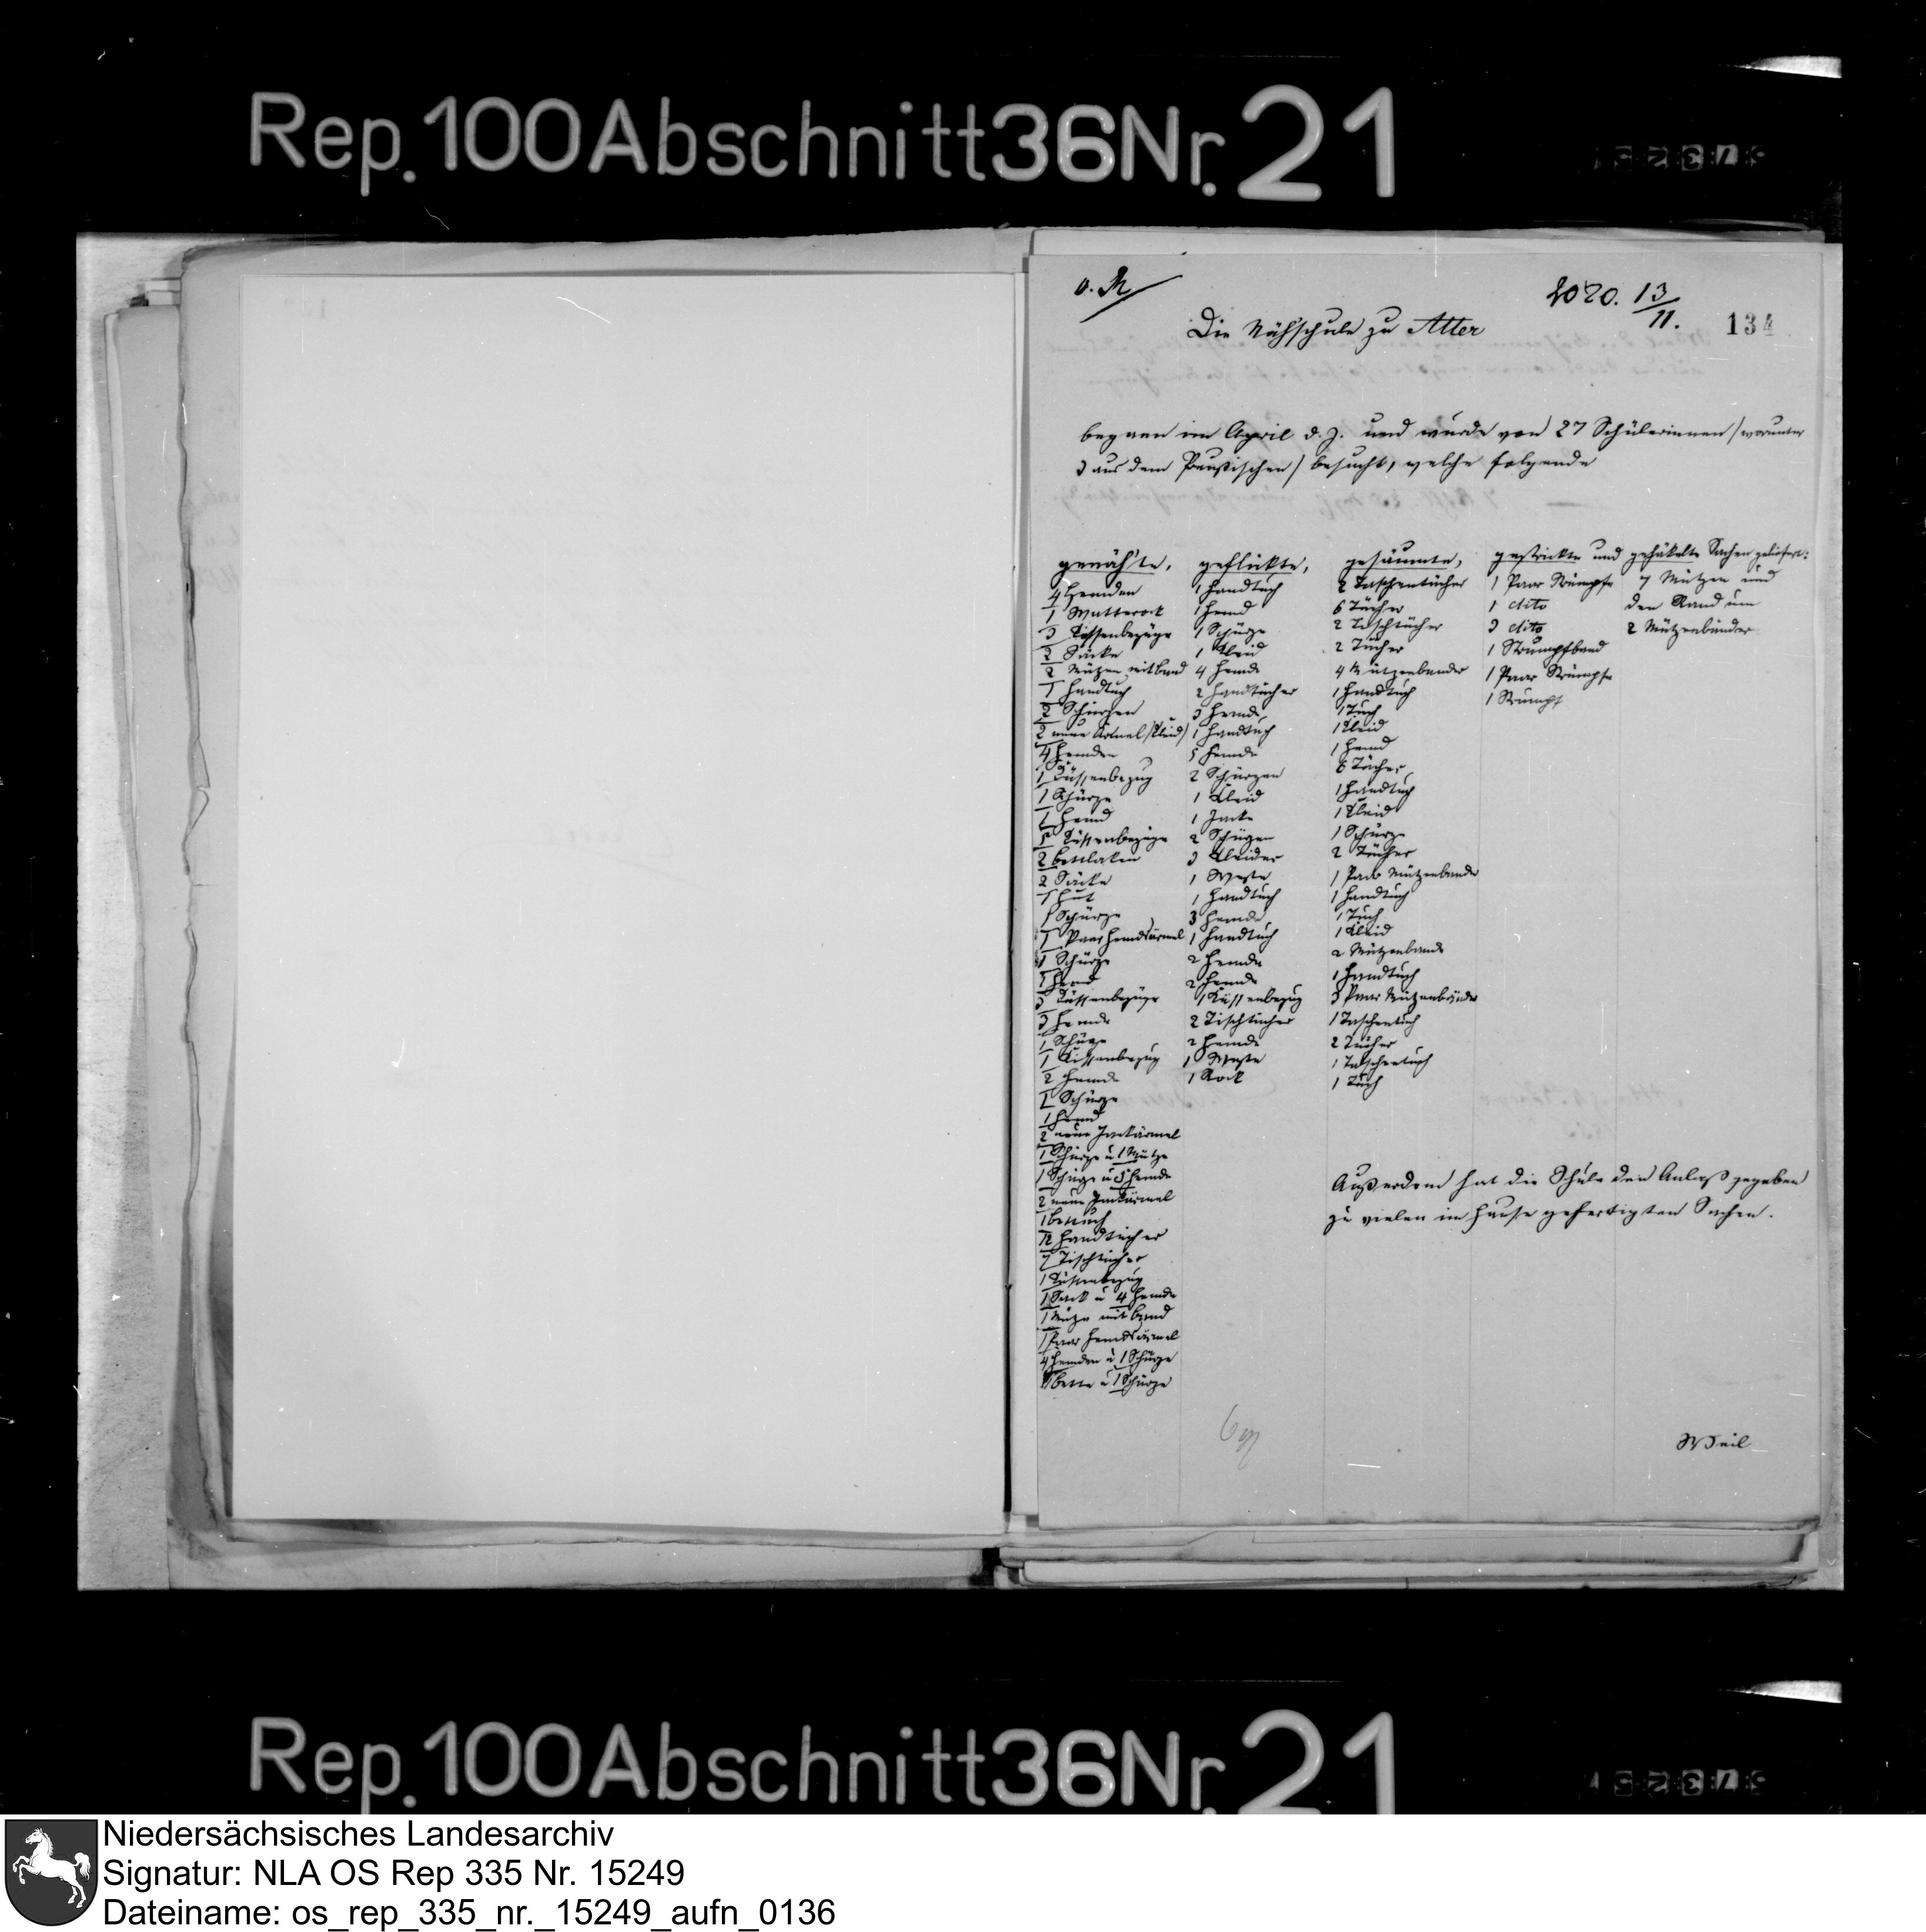 Rep. 100 Abschnitt 36 Nr. 21
2020. 13/11.
134
Die Nähschule zu Atter
begann im April d. J. und wurde von 27 Schülerinnen /worunter
3 aus dem Preußischen/ besucht, welche folgende
genähte, geflickte, gesäumte, gestrickte und gehäkelte Sachen geliefert:
genähte,
4 Hemden
1 Unterrock
3 Küssenbezüge
2 Säcke
2 Mützen mit Band
1 Handtuch
2 Schürzen
2 neue Ärmel /Kleid/
4 Hemden
1 Küssenbezug
1 Schürze
1 Hemd
5 Küssenbezüge
2 Bettlaken
2 Säcke
1 Hut
1 Schürze
1 Paar Hemdsärmel
1 Schürze
1 Hemd
3 Küssenbezüge
3 Hemde
1 Schürze
1 Küssenbezug
2 Hemde
1 Schürze
1 Hemd
2 neue Jackärmel
1 Schürze u 1 Mütze
1 Schürze u 5 Hemde
2 neue Jackärmel
1 Bettuch
12 Handtücher
7 Tischtücher
1 Küssenbezug
1 Sack u 4 Hemde
1 Mütze mit Band
1 Paar Hemdsärmel
4 Hemden u 1 Schürze
u 1 Schürze
geflickte,
1 Handtuch
1 Hemd
1 Schürze
1 Kleid
4 Hemde
2 Handtücher
3 Hemde
1 Handtuch
5 Hemde
2 Schürzen
1 Kleid
1 Jacke
2 Schürzen
3 Kleider
1 Weste
1 Handtuch
3 Hemde
1 Handtuch
2 Hemde
2 Hemde
1 Küssenbezug
2 Tischtücher
2 Hemde
1 Weste
1 Rock
gesäumte,
2 Taschentücher
6 Tücher
2 Tischtücher
2 Tücher
4 Mützenbänder
1 Handtuch
1 Tuch
1 Kleid
1 Hemd
6 Tücher
1 Handtuch
1 Kleid
1 Schürze
2 Tücher
1 Paar Mützenbande
1 Handtuch
1 Tuch
1 Kleid
2 Mützenbande
1 Handtuch
3 Paar Mützenbänder
1 Taschentuch
2 Tücher
1 Taschentuch
1 Tuch
1 Paar Strümpfe
1 dito
3 dito
1 Strumpfband
1 Paar Strümpfe
1 Strumpf
7 Mützen und
den Rand um
2 Mützenbänder
Außerdem hat die Schule den Anlaß gegeben
zu vielen im Hause gefertigten Sachen.
Weil
Rep. 100 Abschnitt 36 Nr. 21
Niedersächsisches Landesarchiv
Signatur: NLA OS Rep 335 Nr. 15249
Dateiname: os_rep_335_nr._15249_aufn_0136